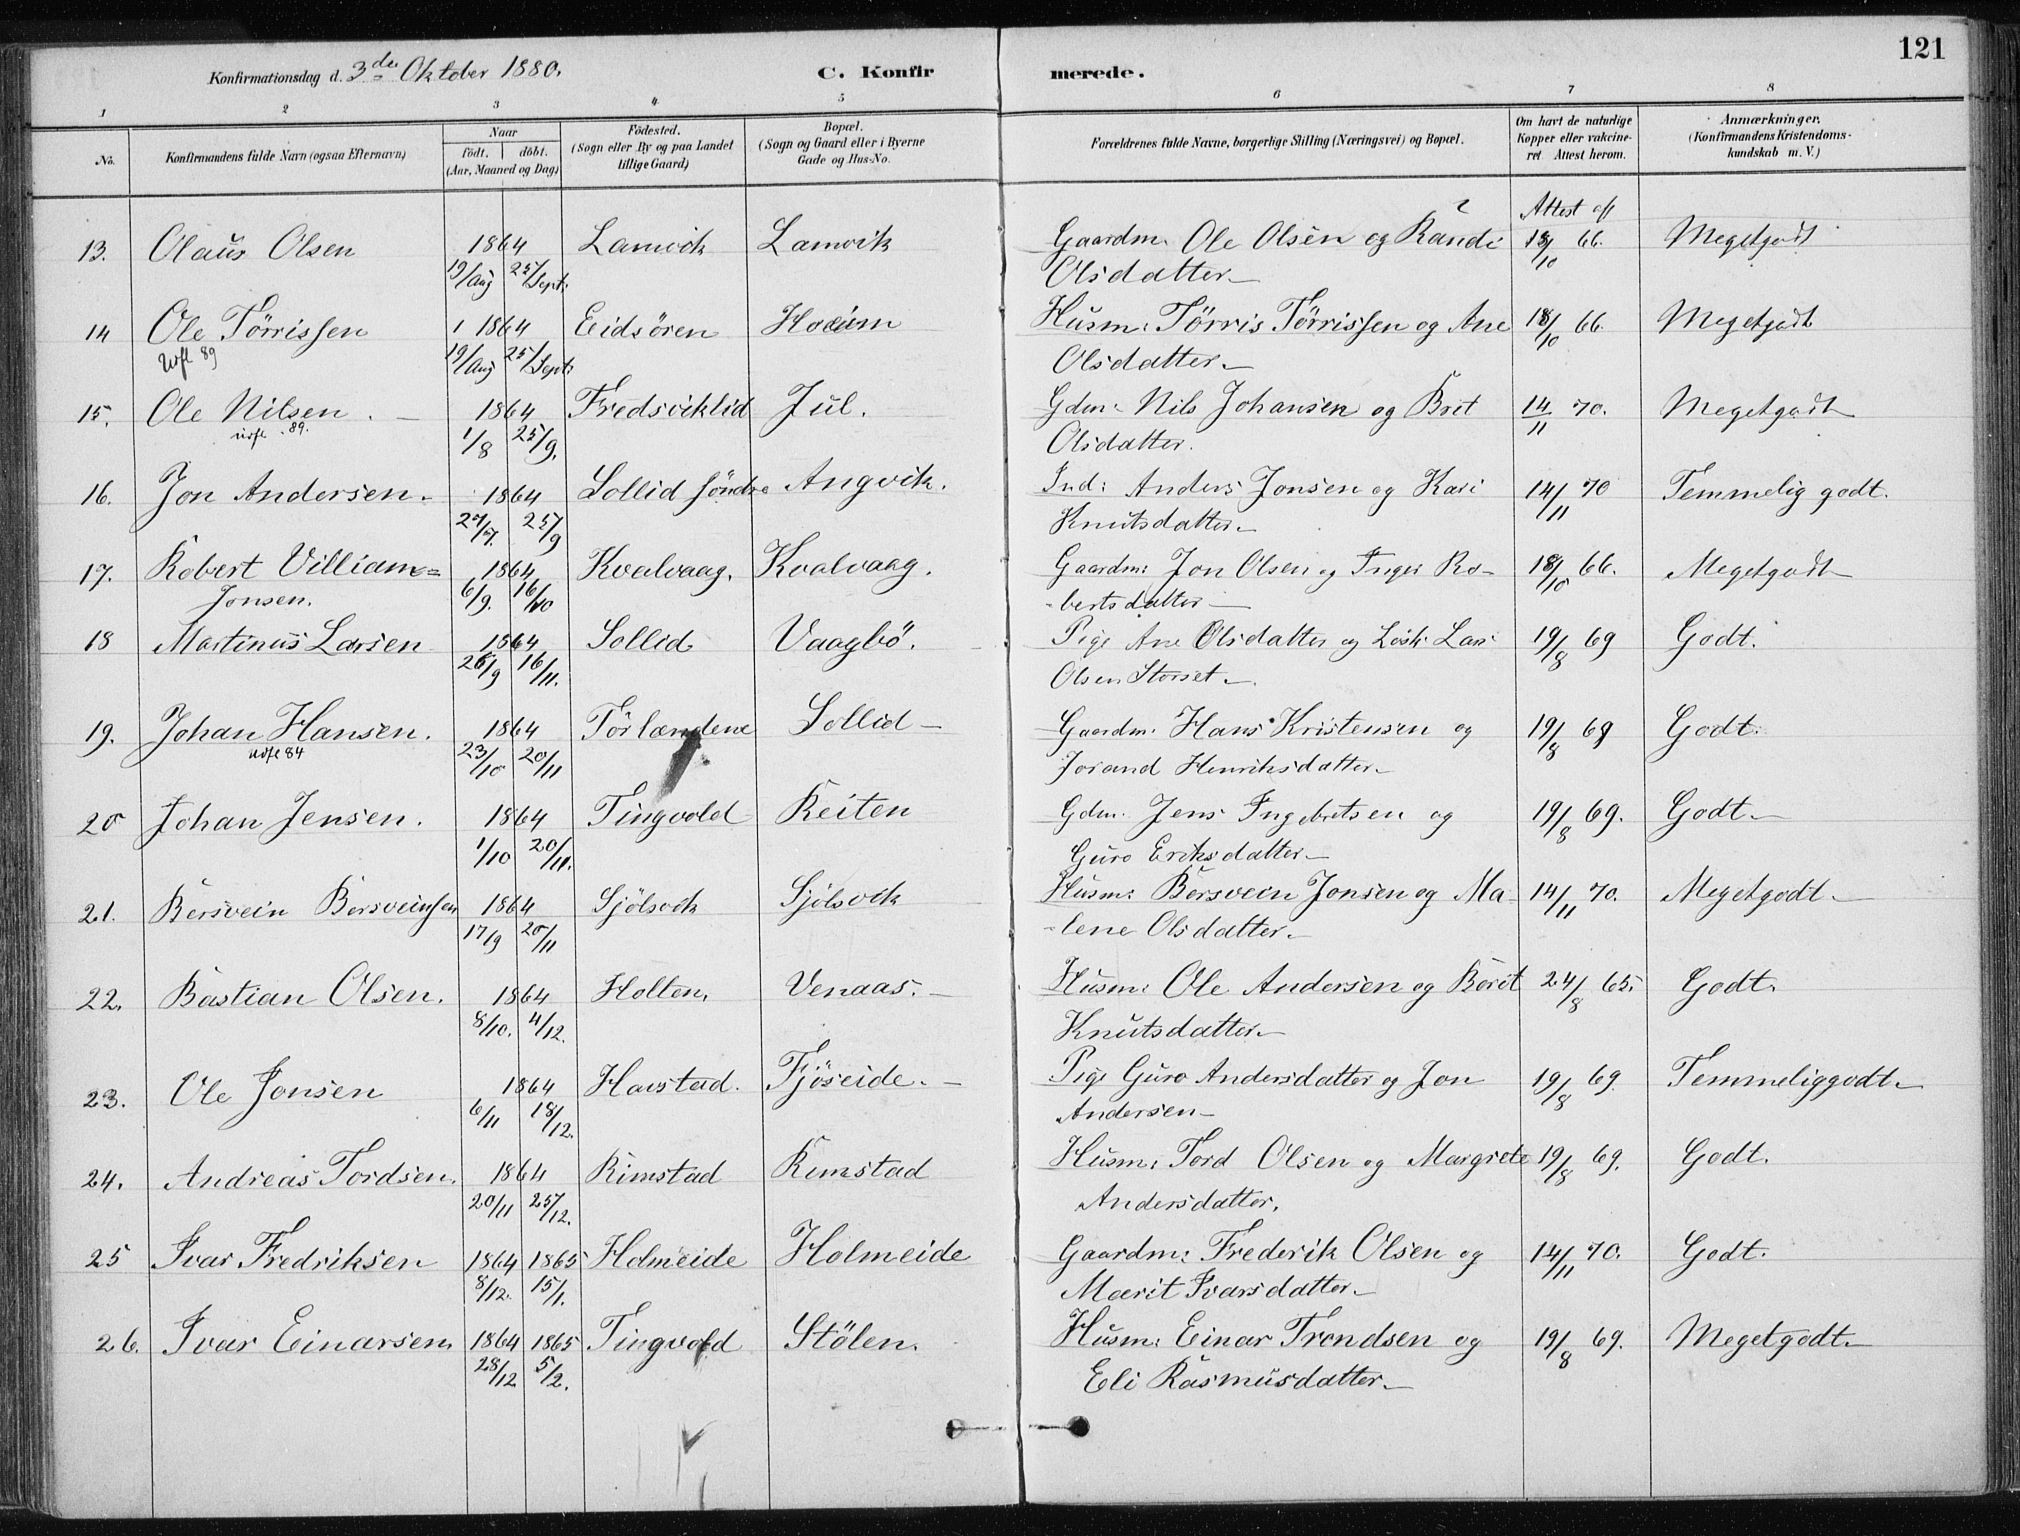 121
Konfirmationsdag d. 3de Oktober 1880. C. Konfirmerede.
1 2 3 4 5 6 7 8
No. Konfirmandens fulde Navn (ogsaa Efternavn) Naar födt. döbt. (Aar, Maaned og Dag) Födested. (Sogn eller By og paa Landet tillige Gaard) Bopæl. (Sogn og Gaard eller i Byerne Gade og Hus-No. Forældrenes fulde Navne, borgerlige Stilling (Næringsvei) og Bopæl. Om havt de naturlige Kopper eller vakcineret Attest herom. Anmærkninger. (Konfirmandens Kristendomskundskab m. V.)
Attest af
13. Olaus Olsen 1864 Lamvik Lamvik Gaardm. Ole Olsen og Randi 18/10 66. Megetgodt
19/Aug 25/Sept: Olsdatter
14 Ole Törrissen 1 1864 Eidsören Husm: Törris Törrissen og Ane 18/10 66. Megetgodt
89 19/Aug 25/Sept: Olsdatter
15. Ole Nilsen. 1864 Fredsviklid Jul. Gdm: Nils Johansen og Brit 14/11 70. Megetgodt
89. 1/8 25/9. Olsdatter.
16. Jon Andersen. 1864 Sollid söndre Angvik. Ind: Anders Jonsen og Kari 14/11 70 Temmelig godt.
27/7. 25/9 Knutsdatter
17. Robert Villiam= 1864 Kvalvaag. Kvalvaag. Gaardm: Jon Olsen og Inger Ro- 18/10 66. Megetgodt
Jonsen. 6/9. 16/10 -bertsdatter
18 Martinus Larsen 1864 Sollid Vaagbö. Pige Ane Olsdatter og Lars 19/8 69 Godt.
26/9 16/11. Olsen Storset
19. Johan Hansen. 1864 Törlændene Sollid Gaardm. Hans Kristensen og 19/8 69 Godt.
84 23/10 20/11 Jorand Henriksdatter
20 Johan Jensen. 1864 Tingvold Reiten Gdm. Jens Ingebretsen og 19/8 69. Godt
1/10 20/11. Guro Eriksdatter
21. Bersvein Bersveinsen 1864 Sjölsvik Sjölsvik Husm: Bersvein Jonsen og Ma- 14/11 70. Megetgodt
17/9 20/11 -lene Olsdatter
22. Bastian Olsen. 1864 Holten. Venaas. Husm: Ole Andersen og Börit 24/8 65. Godt.
8/10. 4/12. Knutsdatter
23. Ole Jonsen 1864 Havstad. Fjöseide. Pige Guro Andersdatter og Jon 19/8 69. Temmeliggodt
6/11 18/12. Andersen
24. Andreas Tordsen. 1864 Rimstad Rimstad Husm: Tord Olsen og Margrete 19/8 69. Godt.
20/11 25/12. Andersdatter.
25 Ivar Fredriksen 1864 1865 Holmeide Holmeide Gaardm: Frederik Olsen og 14/11 70. Godt.
8/12. 15/1. Marit Ivarsdatter
26. Ivar Einarsen 1864 1865 Tingvold Stölen. Husm: Einar Trondsen og 19/8 69. Megetgodt
28/12 5/2. Eli Rasmusdatter